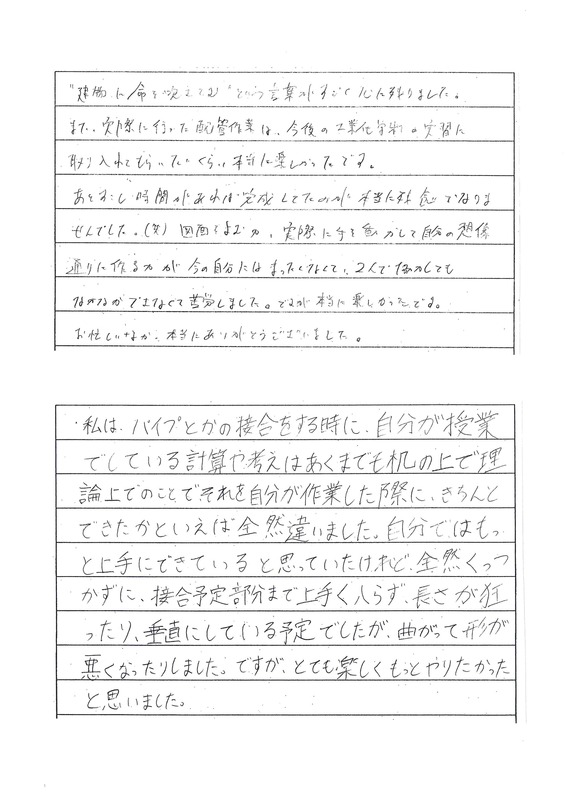 "建物に命を吹き込む"という言葉がすごく心に残りました。
また、実際に行った配管作業は、今後の工業化学科の実習に
取り入れてもらいたいくらい本当に楽しかったです。
あとすこし時間があれば完成してたのが本当に残念でなりま
せんでした。(笑) 図面をよむ力、実際に手を動かして自分の想像
通りに作る力が今の自分にはまったくなくて、2人で協力しても
なかなかできなくて苦労しました。ですが本当に楽しかったです。
お忙しいなか、本当にありがとうございました。
・私は、パイプとかの接合をする時に、自分が授業
でしている計算や考えはあくまでも机の上で理
論上でのことでそれを自分が作業した際に、きちんと
できたかといえば全然違いました。自分ではもっ
と上手にできていると思っていたけれど、全然くっつ
かずに、接合予定部分まで上手く入らず、長さが狂
ったり、垂直にしている予定でしたが、曲がって形が
悪くなったりしました。ですが、とても楽しくもっとやりたかった
と思いました。